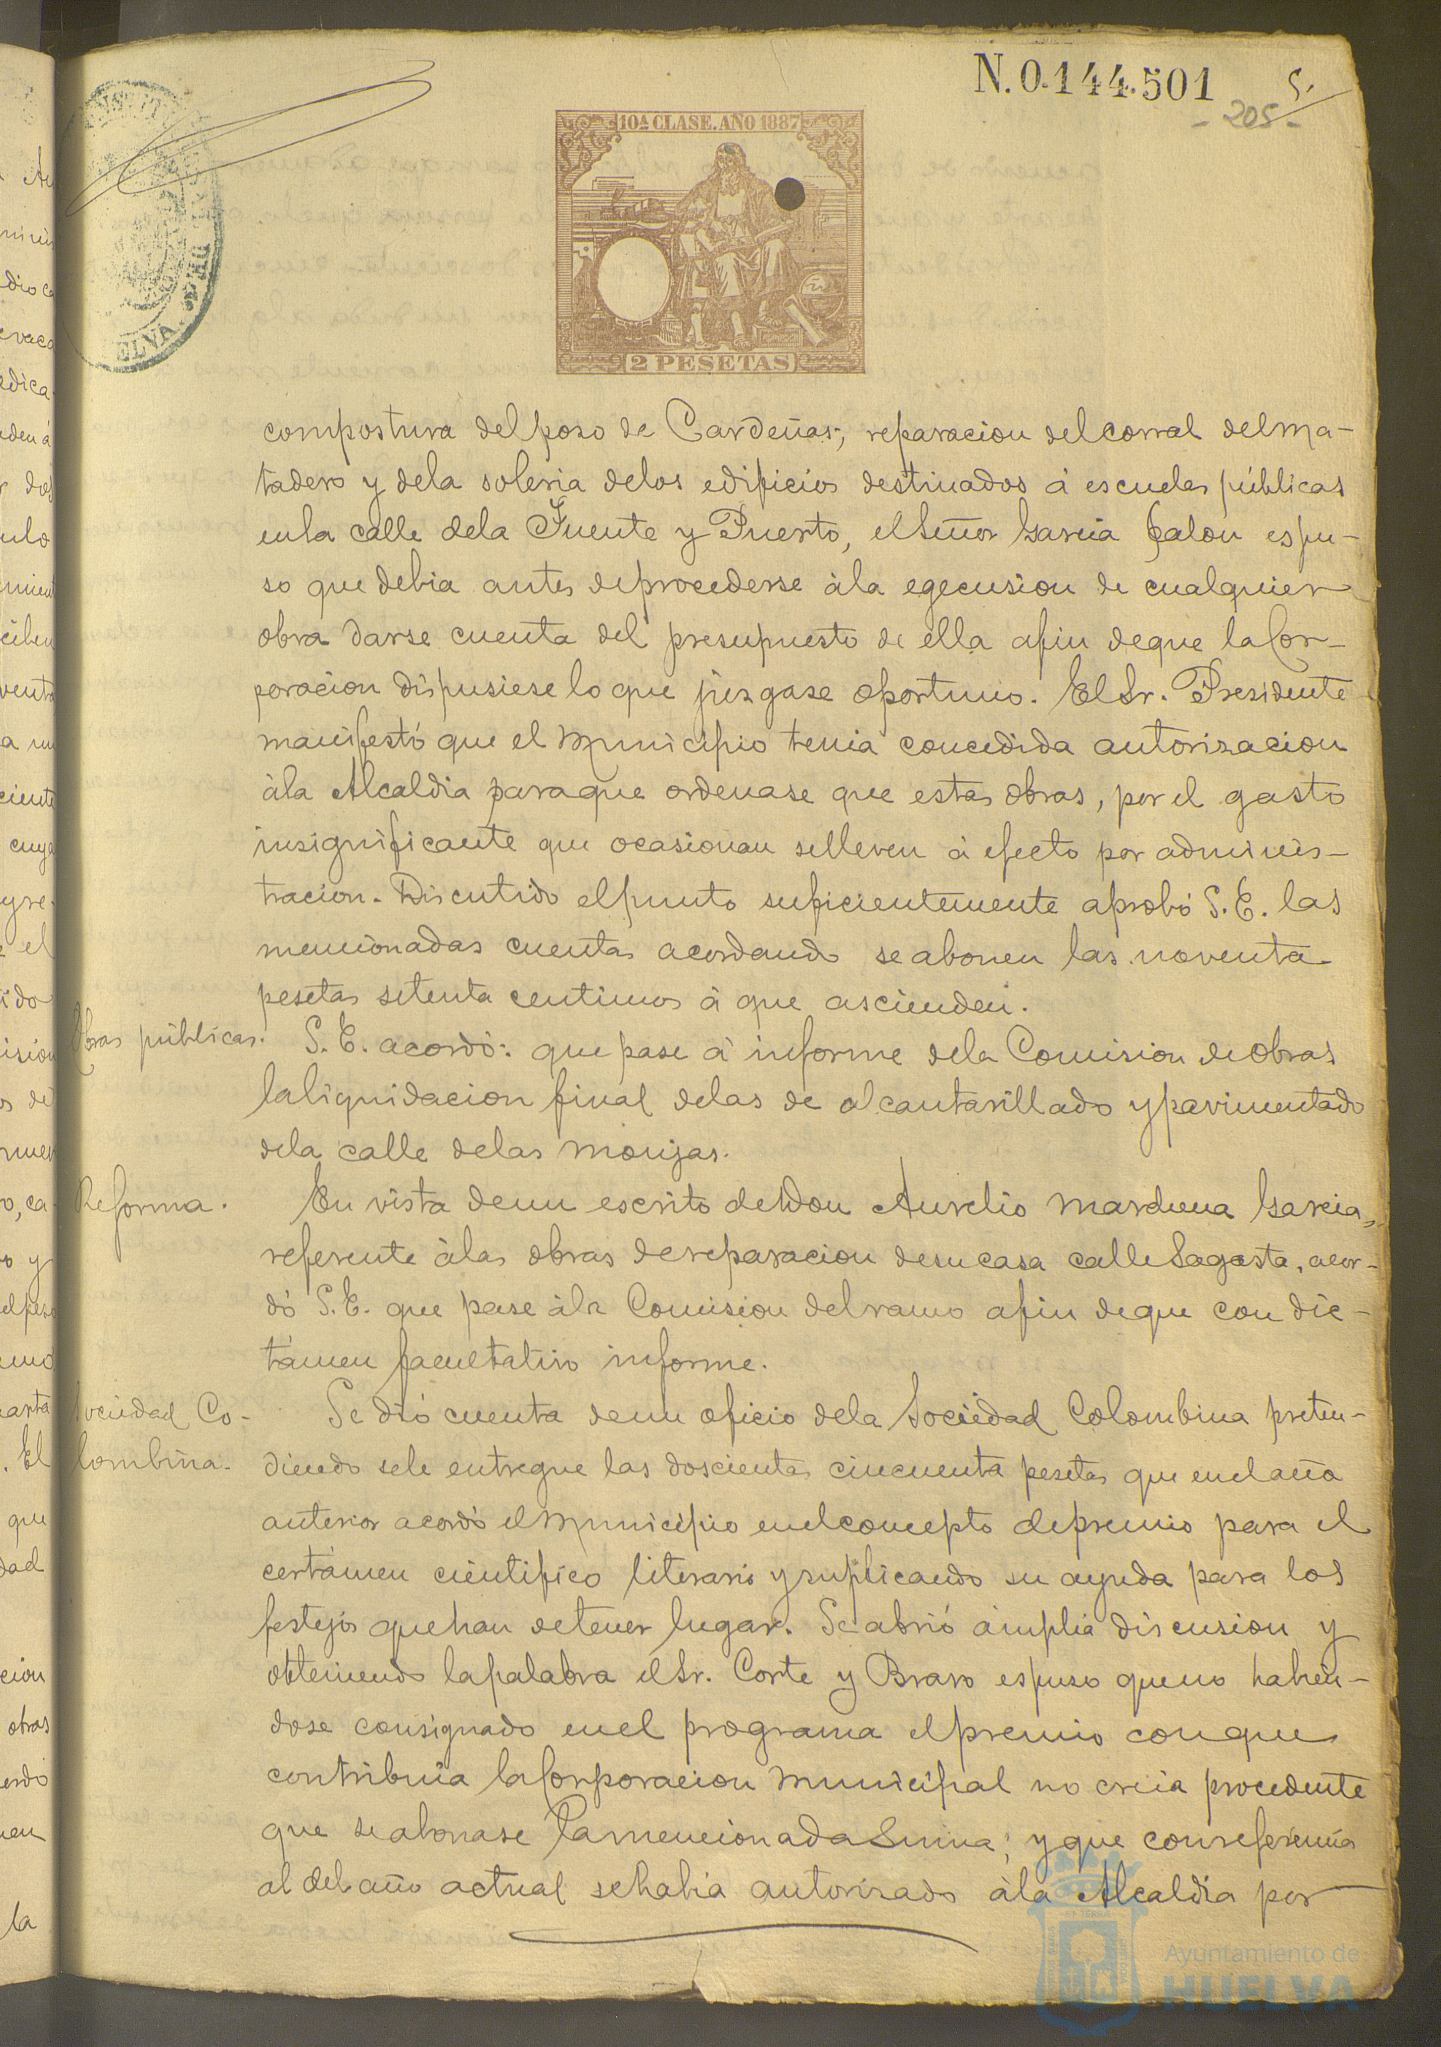 N.0.144.501
5.
- 205 -
10ª CLASE. AÑO 1887
2 PESETAS
ELVA
compostura del poso de Cardeñas, reparacion del corral del ma-
tadero y dela soleria delos edificios destinados á escuelas públicas
enla calle dela Fuente y Puerto, el Señor Garcia Jalon espu-
so que debia antes deprocederse àla egecusion de cualquier
obra darse cuenta del presupuesto de ella afin deque la Cor-
poracion dispusiese lo que juzgase oportuno. El Sr. Presidente
manifestó que el Municipio tenia concedida autorizacion
àla Alcaldia paraque ordenase que estas obras, por el gasto
insignificante que ocasionan selleven à efecto por adminis-
tracion. Discutido elpunto suficientemente aprobó S.E. las
mencionadas cuentas acordando se abonen las noventa
pesetas setenta centimos à que ascienden.
Obras públicas.
S.E. acordó: que pase à informe dela Comision de obras
la liquidacion final delas de alcantarillado y pavimentado
dela calle delas Monjas.
Reforma.
En vista deun escrito de Don Aurelio Marchena Garcia,
referente àlas obras dereparacion desu casa calle Sagasta, acor-
dó S.E. que pase àla Comision delramo afin deque con dic-
támen facultativo informe.
Sociedad Co-
lombina.
Se dió cuenta deun oficio dela Sociedad Colombina preten-
diendo sele entregue las doscientas cincuenta pesetas que enel año
anterior acordó el Municipio enelconcepto depremio para el
certámen cientifico literario y suplicando su ayuda para los
festejos quehan detener lugar. Se abrió ámplia discusion y
obteniendo lapalabra el Sr. Corte y Bravo espuso queno habien-
dose consignado en el programa elpremio conque
contribuia laCorporacion Municipal no creia procedente
que seabonase la mencionada Suma; y que conreferencia
al del año actual sehabia autorizado àla Alcaldia por
Ayuntamiento de
HUELVA